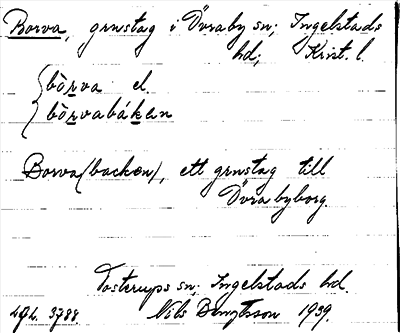 Borva, grnstag i Övraby sn; Ingelstads
hd; Krist. l.
bòrva el.
bòrvabákan
Borva(backen), ett grnstag till
Övrabyborg.
Tosterups sn; Ingelstads hd.
Nils Bengtsson 1939.
3788.